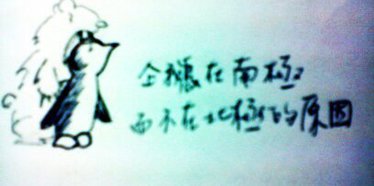 企鵝在南極
而不在北極的原因